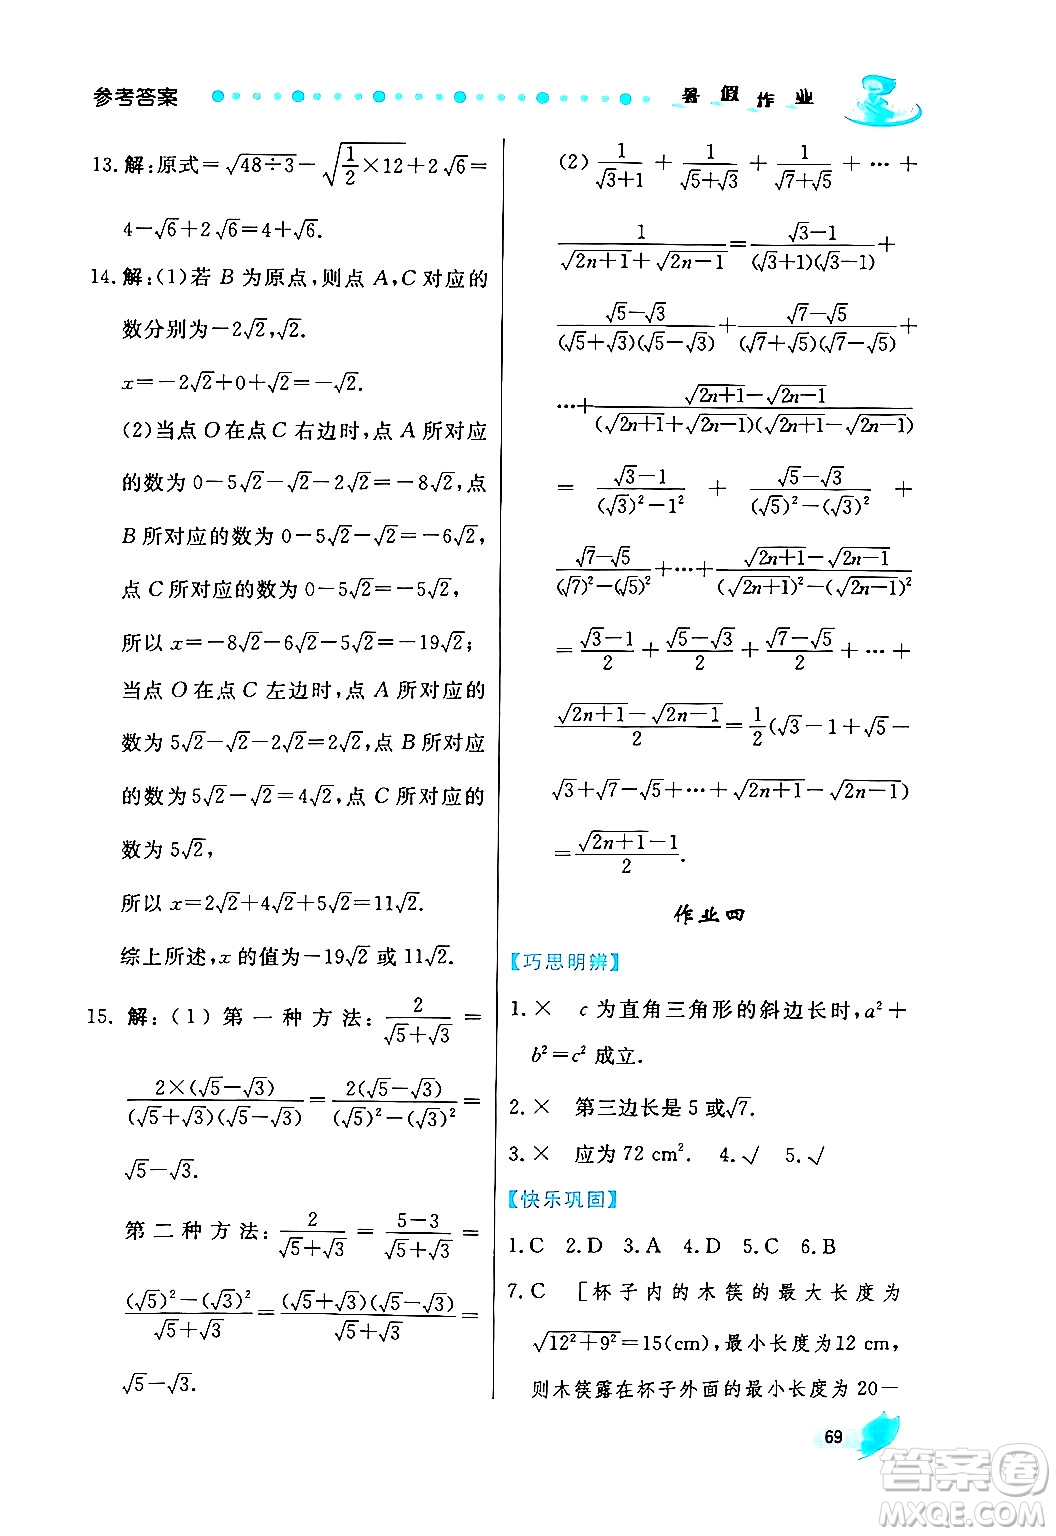 参考答案
暑假作业
13. 解:原式=√(48÷3)-√(1/2×12)+2√6=
4-√6+2√6=4+√6.
14. 解:(1)若 B 为原点,则点 A,C 对应的
数分别为-2√2,√2.
x=-2√2+0+√2=-√2.
(2)当点 O 在点 C 右边时,点 A 所对应
的数为 0-5√2-√2-2√2=-8√2,点
B 所对应的数为 0-5√2-√2=-6√2,
点 C 所对应的数为 0-5√2=-5√2,
所以 x=-8√2-6√2-5√2=-19√2;
当点 O 在点 C 左边时,点 A 所对应的
数为 5√2-√2-2√2=2√2,点 B 所对应
的数为 5√2-√2=4√2,点 C 所对应的
数为 5√2,
所以 x=2√2+4√2+5√2=11√2.
综上所述,x 的值为-19√2 或 11√2.
15. 解:(1)第一种方法:2/(√5+√3)=
2×(√5-√3)/((√5+√3)(√5-√3))=2(√5-√3)/((√5)²-(√3)²)=
√5-√3.
第二种方法:2/(√5+√3)=(5-3)/(√5+√3)=
((√5)²-(√3)²)/(√5+√3)=(√5+√3)(√5-√3)/(√5+√3)=
√5-√3.
(2) 1/(√3+1)+1/(√5+√3)+1/(√7+√5)+…+
1/(√(2n+1)+√(2n-1))=(√3-1)/((√3+1)(√3-1))+
(√5-√3)/((√5+√3)(√5-√3))+(√7-√5)/((√7+√5)(√7-√5))+
…+(√(2n+1)-√(2n-1))/((√(2n+1)+√(2n-1))(√(2n+1)-√(2n-1)))
=(√3-1)/((√3)²-1²)+(√5-√3)/((√5)²-(√3)²)+
(√7-√5)/((√7)²-(√5)²)+…+(√(2n+1)-√(2n-1))/((√(2n+1))²-(√(2n-1))²)
=(√3-1)/2+(√5-√3)/2+(√7-√5)/2+…+
(√(2n+1)-√(2n-1))/2=1/2(√3-1+√5-
√3+√7-√5+…+√(2n+1)-√(2n-1))
=(√(2n+1)-1)/2.
作业四
【巧思明辨】
1. × c 为直角三角形的斜边长时,a²+
b²=c² 成立.
2. × 第三边长是 5 或√7.
3. × 应为 72 cm². 4. √ 5. √
【快乐巩固】
1. C 2. D 3. A 4. D 5. C 6. B
7. C [杯子内的木筷的最大长度为
√(12²+9²)=15(cm),最小长度为12 cm,
则木筷露在杯子外面的最小长度为 20-
69
答案圈
MXQE.COM